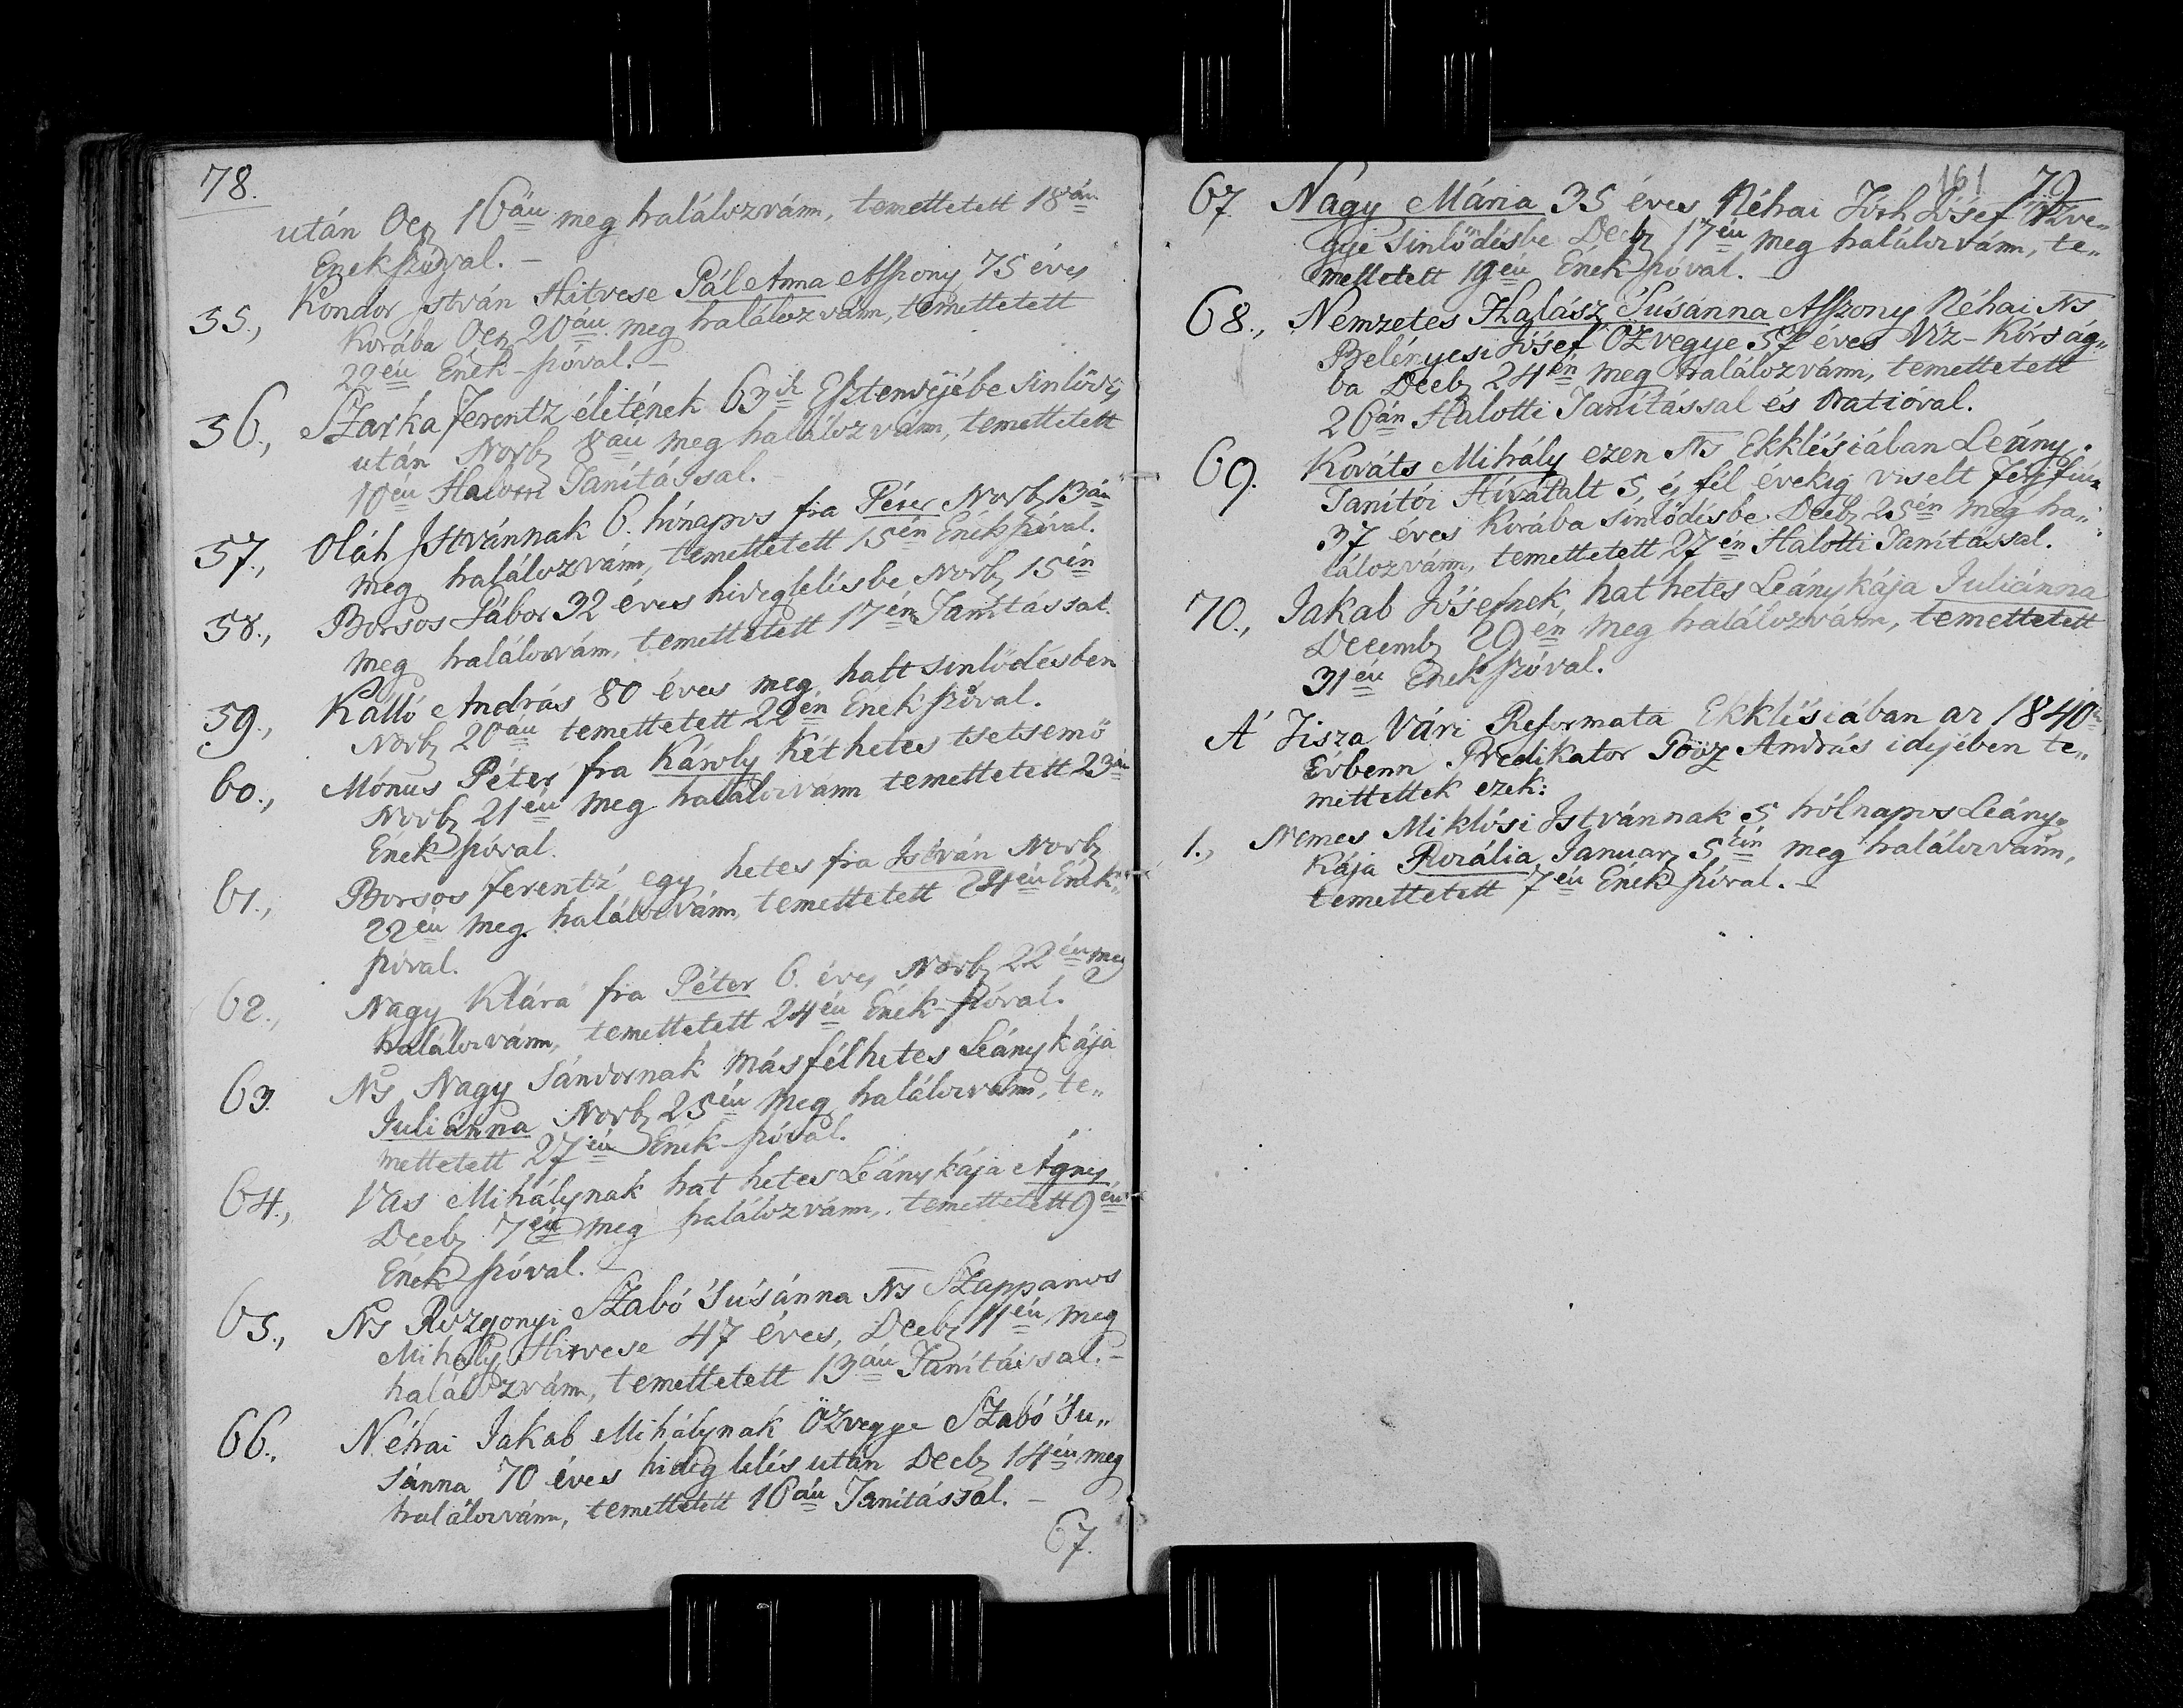 78.
után Octz 16án meg halálozvánn, temettetett 18án
Énekszóval. –
55., Kondor István Hitvese Pál Anna Aszszony 75 éves
Korába Octz 20án meg halálozvánn, temettetett
22én Ének-szóval. –
56., Szarka Ferentz életének 63ik Esztendejébe sinlőd's
után Novbz 8án meg halálozvánn, temettetett
10én Halotti Tanítással.
57., Oláh Istvánnak 6. hónapos fia Péter Novbz 13án
meg halálozvánn, temettetett 15én Énekszóval.
58., Borsos Gábor 32 éves hideglelésbe Novbz 15én
meg halálozvánn, temettetett 17én Tanítással.
59., Kálló András 80 éves meg halt sinlődésben
Novbz 20án temettetett 22én Énekszóval.
60., Mónus Péter fia Károly Kéthetes tsetsemő
Novbz 21én meg halálozvánn temettetett 23án
Ének szóval.
61., Borsos Ferentz egy hetes fia István Novbz
22én meg halálozvánn, temettetett 24én Ének„
szóval.
62., Nagy Klára fia Péter 6. éves Novbz 22én meg
halálozvánn, temettetett 24én Ének-szóval.
63. Ns Nagy Sándornak másfélhetes Leánykája
Juliánna Novbz 25én meg halálozvánn, te„
mettetett 27én Ének-szóval.
64., Vas Mihálynak hat hetes Leánykája Ágnes
Decbz 7én meg halálozvánn, temettetett 9én
Ének szóval. –
65., Ns Rozgonyi Szabó 'Susánna Ns Szappanos
Mihály Hitvese 47 éves, Decbz 11én meg
halálozvánn, temettetett 13án Tanítással. –
66., Néhai Jakab Mihálynak Özvegye Szabó 'Su„
sánna 70 éves hideglelés után Decbz 14én meg
halálozvánn, temettetett 16án Tanítással. –
67.
161 79
67. Nagy Mária 35 éves Néhai Tóth Jósef Özve„
gye Sinlődésbe Decbz 17én meg halálozvánn, te„
mettetett 19én Ének szóval. –
68., Nemzetes Halász 'Susánna Aszszony Néhai Ns
Belényesi Jósef Özvegye 57 éves Víz-Kórság„
ba Decbz 24én meg halálozvánn, temettetett
26án Halotti Tanítással és Oratióval.
69. Kováts Mihály ezen Ns Ekklésiában Leány„
Tanítói Hivatalt 5, és fél évekig viselt Férjfiú
37 éves Korába sinlődésbe Decbz 25én meg ha„
lálozvánn, temettetett 27én Halotti Tanítással.
70., Jakab Jósefnek, hat hetes Leánykája Juliánna
Decembz 29én meg halálozvánn, temettetett
31én Ének szóval.
A' Tisza Vári Reformata Ekklésiában az 1840ik
Évbenn Prédikátor András idejében te„
mettettek ezek:
1., Nemes Miklósi Istvánnak 5 hólnapos Leány„
kája Rozália Januarz 5én meg halálozvánn,
temettetett 7én Ének szóval. –